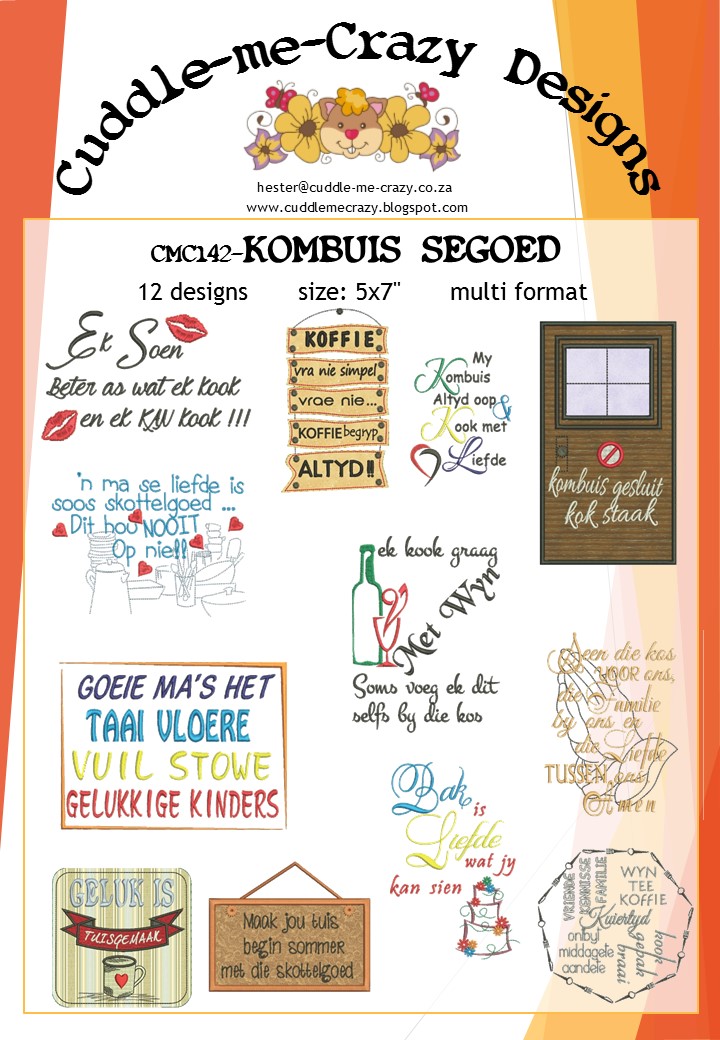 Cuddle-me-Crazy Designs
hester@cuddle-me-crazy.co.za
www.cuddlemecrazy.blogspot.com
CMC142-KOMBUIS SEGOED
12 designs size: 5x7" multi format
Ek Soen
Beter as wat ek kook
en ek KAN kook !!!
KOFFIE
vra nie simpel
vrae nie...
KOFFIE begryp
ALTYD!!
My
Kombuis
Altyd oop &
Kook met
Liefde
kombuis gesluit
kok staak
'n ma se liefde is
soos skottelgoed ...
Dit hou NOOIT
Op nie!!
ek kook graag
Met Wyn
Soms voeg ek dit
selfs by die kos
Seen die kos
VOOR ons,
die Familie
by ons en
die Liefde
TUSSEN ons
Amen
GOEIE MA'S HET
TAAI VLOERE
VUIL STOWE
GELUKKIGE KINDERS
Bak is
Liefde
wat jy
kan sien
GELUK IS
TUISGEMAAK
Maak jou tuis
begin sommer
met die skottelgoed
VRIENDE
KENNISSE
FAMILIE
WYN
TEE
KOFFIE
Kuiertyd
ontbyt
middagete
aandete
kook
gebak
braai